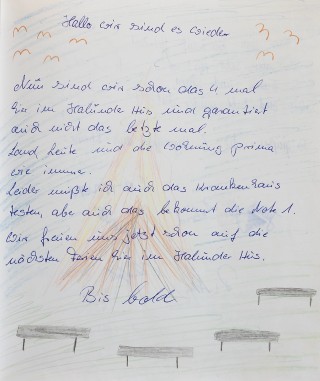 Hallo wir sind es wieder
Nun sind wir schon das 4 mal
hier im Holunder Hüs und garantiert
auch nicht das letzte mal.
Land, Leute und die Wohnung prima
wie immer.
Leider mußte ich auch das Krankenhaus
testen, aber auch das bekommt die Note 1.
Wir freuen uns jetzt schon auf die
nächsten Ferien hier im Holunder Hüs.
Bis bald